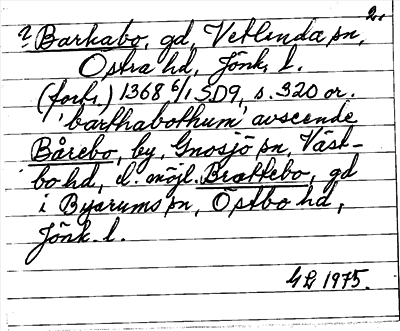 2.
? Barkabo, gd, Vetlanda sn,
Östra hd, Jönk. l.
(forts.) 1368 6/1 SD9, s. 320 or.
'barthabothum' avseende
Bårebo, by, Gnosjö sn, Väst-
bo hd, el. möjl. Brattebo, gd
i Byarums sn, Östbo hd,
Jönk. l.
GL 1975.